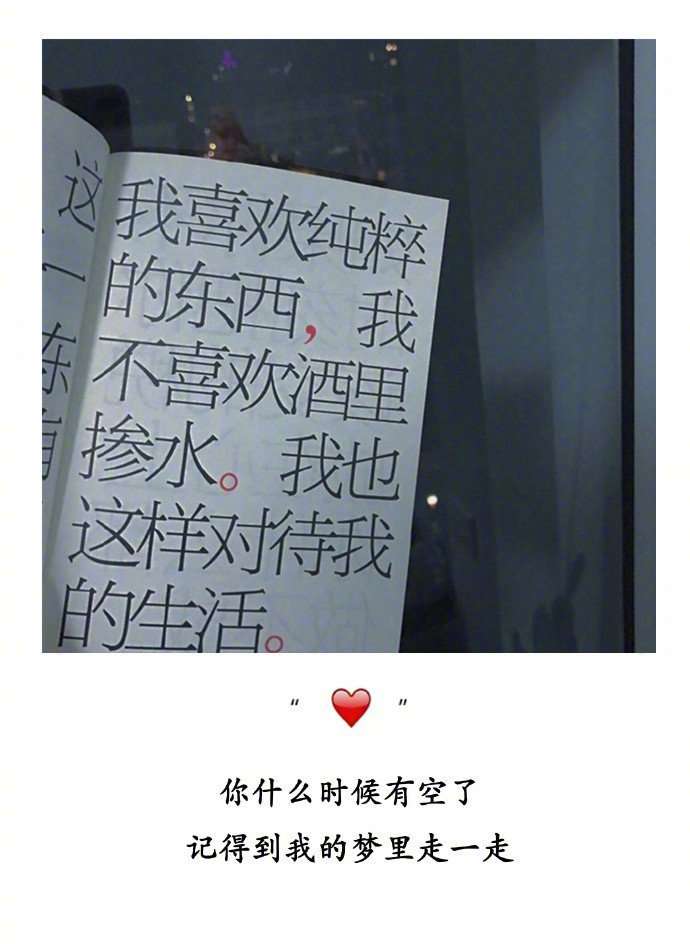 这
一
东
有
我喜欢纯粹
的东西，我
不喜欢酒里
掺水。我也
这样对待我
的生活。
“ ❤️ ”
你什么时候有空了
记得到我的梦里走一走